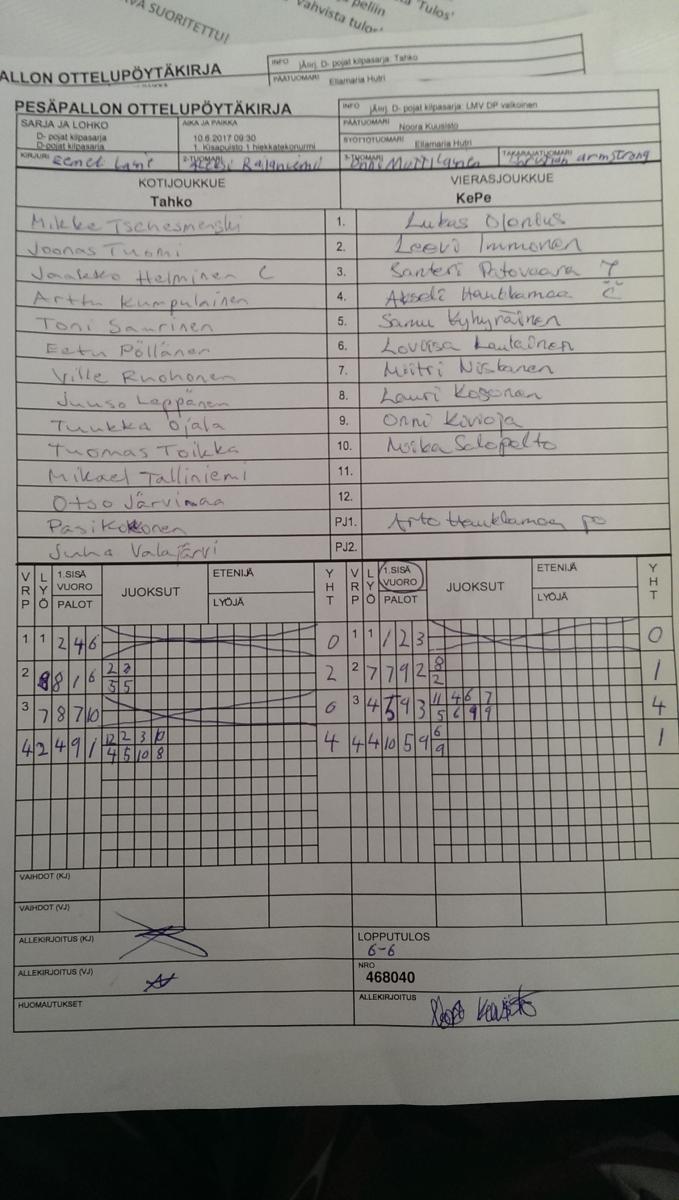 VA SUORITETTU!
peliin
'Tulos'
vahvista tulos
INFO jÄnrj. D- pojat kilpasarja Tahko
ALLON OTTELUPÖYTÄKIRJA
PÄÄTUOMARI Ellamaria Hutri
PESÄPALLON OTTELUPÖYTÄKIRJA
INFO jÄnrj. D- pojat kilpasarja: LMV DP valkoinen
SARJA JA LOHKO AIKA JA PAIKKA PÄÄTUOMARI Noora Kuusisto
D- pojat kilpasarja 10.6.2017 09:30 SYÖTTÖTUOMARI Ellamaria Hutri
D-pojat kilpasarja 1. Kisapuisto 1 hiekkatekonurmi
KIRJURI Eemel Laine 2-TUOMARI Rajaniemi 3-TUOMARI Onni Muttilainen TAKARAJATUOMARI armstrong
KOTIJOUKKUE VIERASJOUKKUE
Tahko KePe
Mikke Tschesmenski 1. Lukas Olonius
Joonas Tuomi 2. Leevi Immonen
Jaakko Helminen C 3. Santeri Patovaara 7
Arttu Kumpulainen 4. Akseli Hautkamaa C
Toni Saurinen 5. Samu Kyhyräinen
Eetu Pöllänen 6. Loviisa Laulainen
Ville Ruohonen 7. Miitri Niskanen
Juuso Leppänen 8. Lauri Kosonen
Tuukka Ojala 9. Onni Kivioja
Tuomas Toikka 10. Miika Salopelto
Mikael Talliniemi 11.
Otso Järvimaa 12.
Pasi Kokkonen PJ1. Arto Hautkamaa po
Juha Valajärvi PJ2.
VRP LYÖ 1.SISÄ VUORO PALOT JUOKSUT ETENIJÄ LYÖJÄ YHT VRP LYÖ 1.SISÄ VUORO PALOT JUOKSUT ETENIJÄ LYÖJÄ YHT
1 1 2 4 6 0 1 1 1 2 3 0
2 8 8 1 6 2 3 2 2 7 7 9 2 8 1
5 5 2
3 7 8 7 10 0 3 4 5 9 3 11 4 6 7 4
5 6 9 9
4 2 4 9 1 12 2 3 10 4 4 4 10 5 9 6 1
4 5 10 8 9
VAIHDOT (KJ)
VAIHDOT (VJ)
ALLEKIRJOITUS (KJ) LOPPUTULOS
6-6
ALLEKIRJOITUS (VJ) NRO
468040
HUOMAUTUKSET ALLEKIRJOITUS